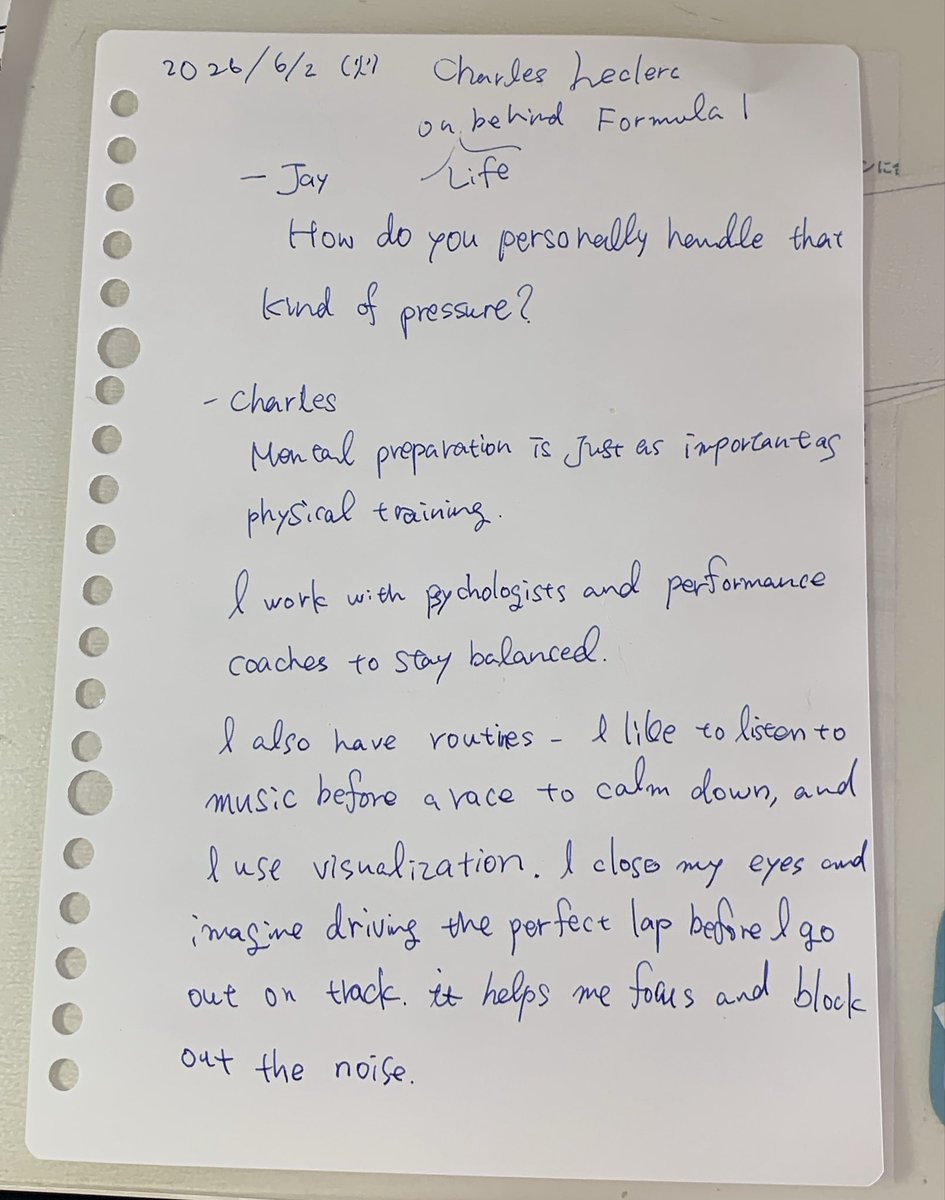 2026/6/2 (火) Charles Leclerc
on behind Formula 1
Life
- Jay
How do you personally handle that
kind of pressure?
- Charles
Mental preparation is just as important as
physical training.
I work with psychologists and performance
coaches to stay balanced.
I also have routies - I like to listen to
music before a race to calm down, and
I use visualization. I close my eyes and
imagine driving the perfect lap before I go
out on track. it helps me focus and block
out the noise.